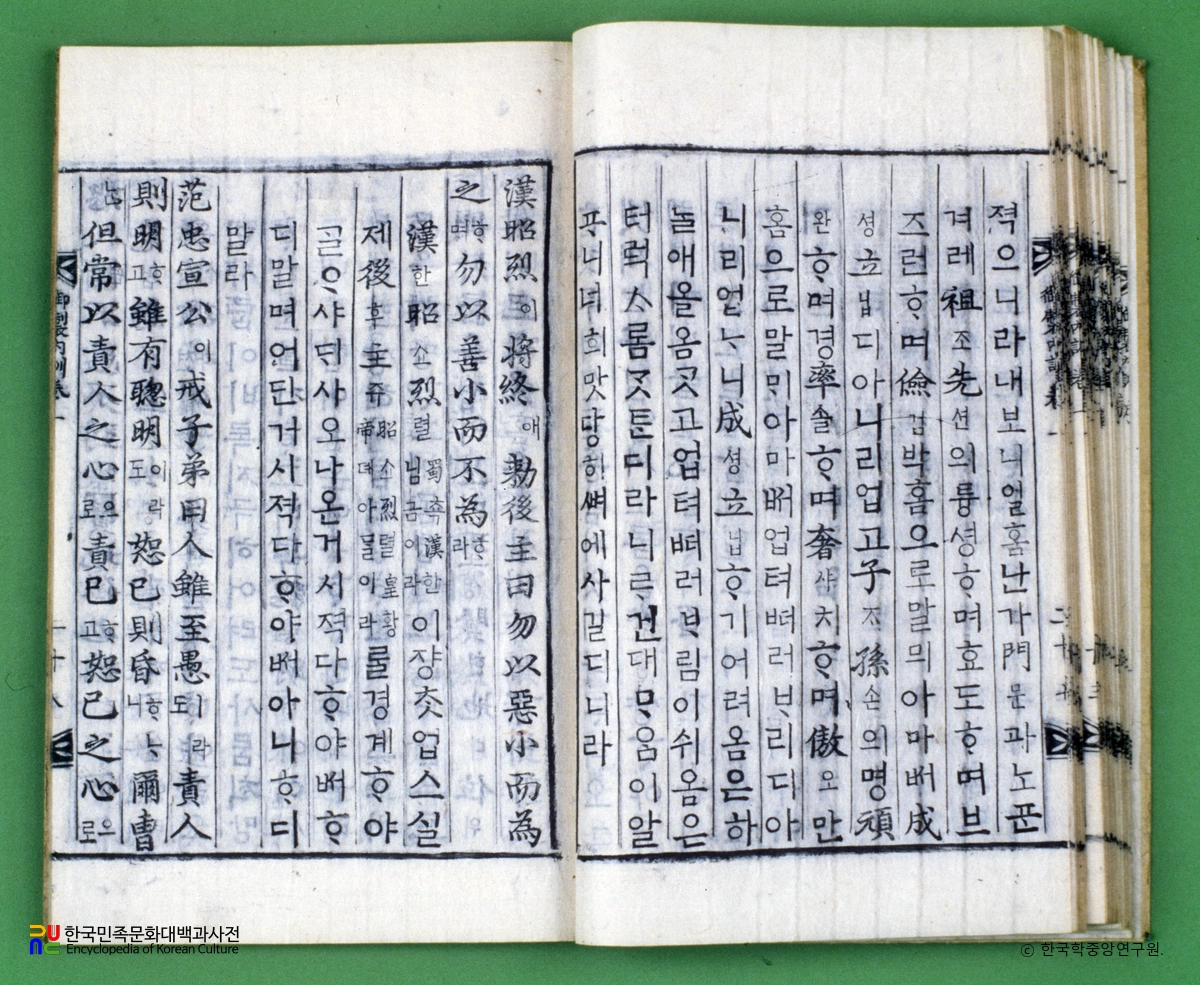 젹으니라내보니일홈난가門문과노푼
겨레祖조先션의튱셩ᄒᆞ며효도ᄒᆞ며브
즈런ᄒᆞ며儉검박홈으로말믜아마ᄡᅥ成
셩立닙디아니리업고子ᄌᆞ孫손의명頑
완ᄒᆞ며경率솔ᄒᆞ며奢샤치ᄒᆞ며傲오만
홈으로말믜아마ᄡᅥ업텨ᄠᅥ러ᄇᆞ리디아
니리업ᄂᆞ니成셩立닙ᄒᆞ기어려옴은하
ᄂᆞᆯ애올옴ᄀᆞᆺ고업텨ᄠᅥ러ᄇᆞ림이쉬옴은
터럭ᄉᆞ롬ᄀᆞᆺᄐᆞᆫ디라니ᄅᆞ건대ᄆᆞᄋᆞᆷ이알
프니너희맛당히ᄲᅧ에사길디니라
漢昭烈이將終애勅後主曰勿以惡小而為
之ᄒᆞ며勿以善小而不為ᄒᆞ라
漢한昭쇼烈렬蜀쵹漢한님금이라이쟝ᄎᆞᆺ업스실
제後후主쥬昭쇼烈렬皇황帝뎨아ᄃᆞᆯ이라ᄅᆞᆯ경계ᄒᆞ야
ᄀᆞᆯᄋᆞ샤ᄃᆡ사오나온거시젹다ᄒᆞ야ᄡᅥᄒᆞ
디말며어딘거시젹다ᄒᆞ야ᄡᅥ아니ᄒᆞ디
말라
范忠宣公이戒子弟曰人雖至愚ㅣ라도責人
則明ᄒᆞ고雖有聰明이라도恕己則昏ᄒᆞᄂᆞ니爾曹
ᄂᆞᆫ但常以責人之心으로責己ᄒᆞ고恕己之心으로
御製內訓卷一
한국민족문화대백과사전
Encyclopedia of Korean Culture
ⓒ 한국학중앙연구원.